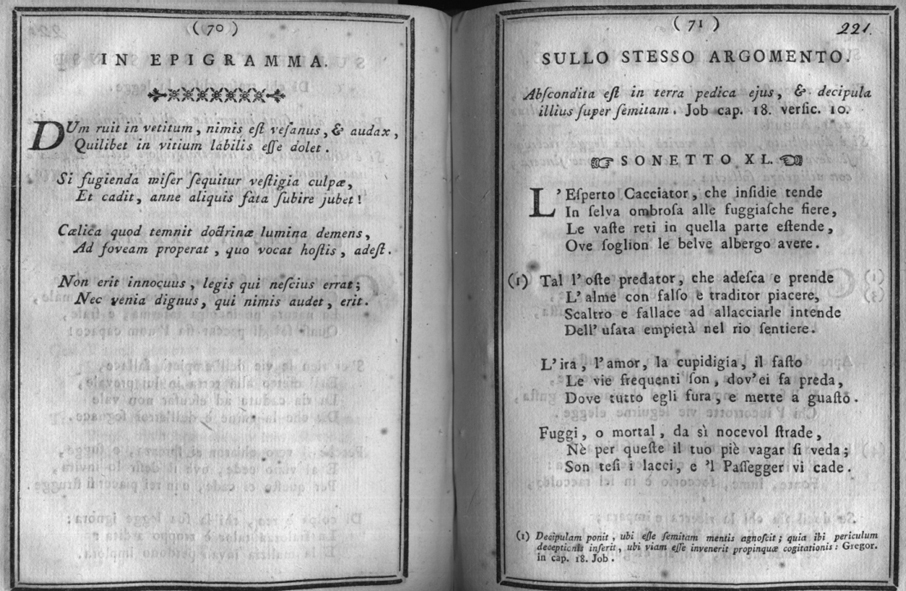 ( 70 )
IN EPIGRAMMA.
DUm ruit in vetitum, nimis eſt veſanus, & audax,
Quilibet in vitium labilis eſſe dolet.
Si fugienda miſer ſequitur veſtigia culpæ,
Et cadit, anne aliquis fata ſubire jubet!
Cælica quod temnit doctrinæ lumina demens,
Ad foveam properat, quo vocat hoſtis, adeſt.
Non erit innocuus, legis qui neſcius errat;
Nec venia dignus, qui nimis audet, erit.
( 71 )
221.
SULLO STESSO ARGOMENTO.
Abſcondita eſt in terra pedica ejus, & decipula
illius ſuper ſemitam. Job cap. 18. verſic. 10.
SONETTO XL.
L'Eſperto Cacciator, che inſidie tende
In ſelva ombroſa alle fuggiaſche fiere,
Le vaſte reti in quella parte eſtende,
Ove ſoglion le belve albergo avere.
(1) Tal l'oſte predator, che adeſca e prende
L'alme con falſo e traditor piacere,
Scaltro e fallace ad allacciarle intende
Dell'uſata empietà nel rio ſentiere.
L'ira, l'amor, la cupidigia, il faſto
Le vie frequenti ſon, dov'ei fa preda,
Dove tutto egli fura, e mette a guaſto.
Fuggi, o mortal, da sì nocevol ſtrade,
Nè per queſte il tuo piè vagar ſi veda;
Son teſi i lacci, e 'l Paſſegger vi cade.
(1) Decipulam ponit, ubi eſſe ſemitam mentis agnoſcit; quia ibi periculum
deceptionis inſerit, ubi viam eſſe invenerit propinquæ cogitationis: Gregor.
in cap. 18. Job.